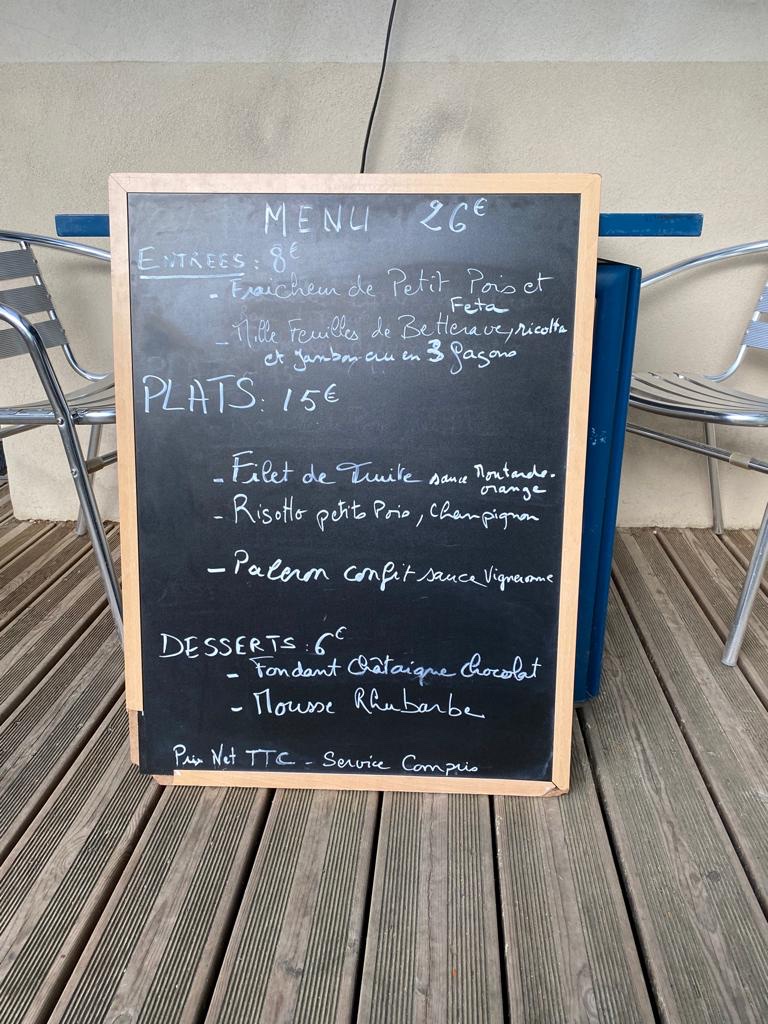 MENU 26€
ENTREES : 8€
- Fraicheur de Petit Pois et
Feta
- Mille Feuilles de Betterave, ricotta
et jambon cru en 3 façons
PLATS : 15€
- Filet de Truite sauce Moutarde-
orange
- Risotto petits Pois, Champignon
- Paleron confit sauce Vigneronne
DESSERTS : 6€
- Fondant Châtaigne Chocolat
- Mousse Rhubarbe
Prix Net TTC - Service Compris